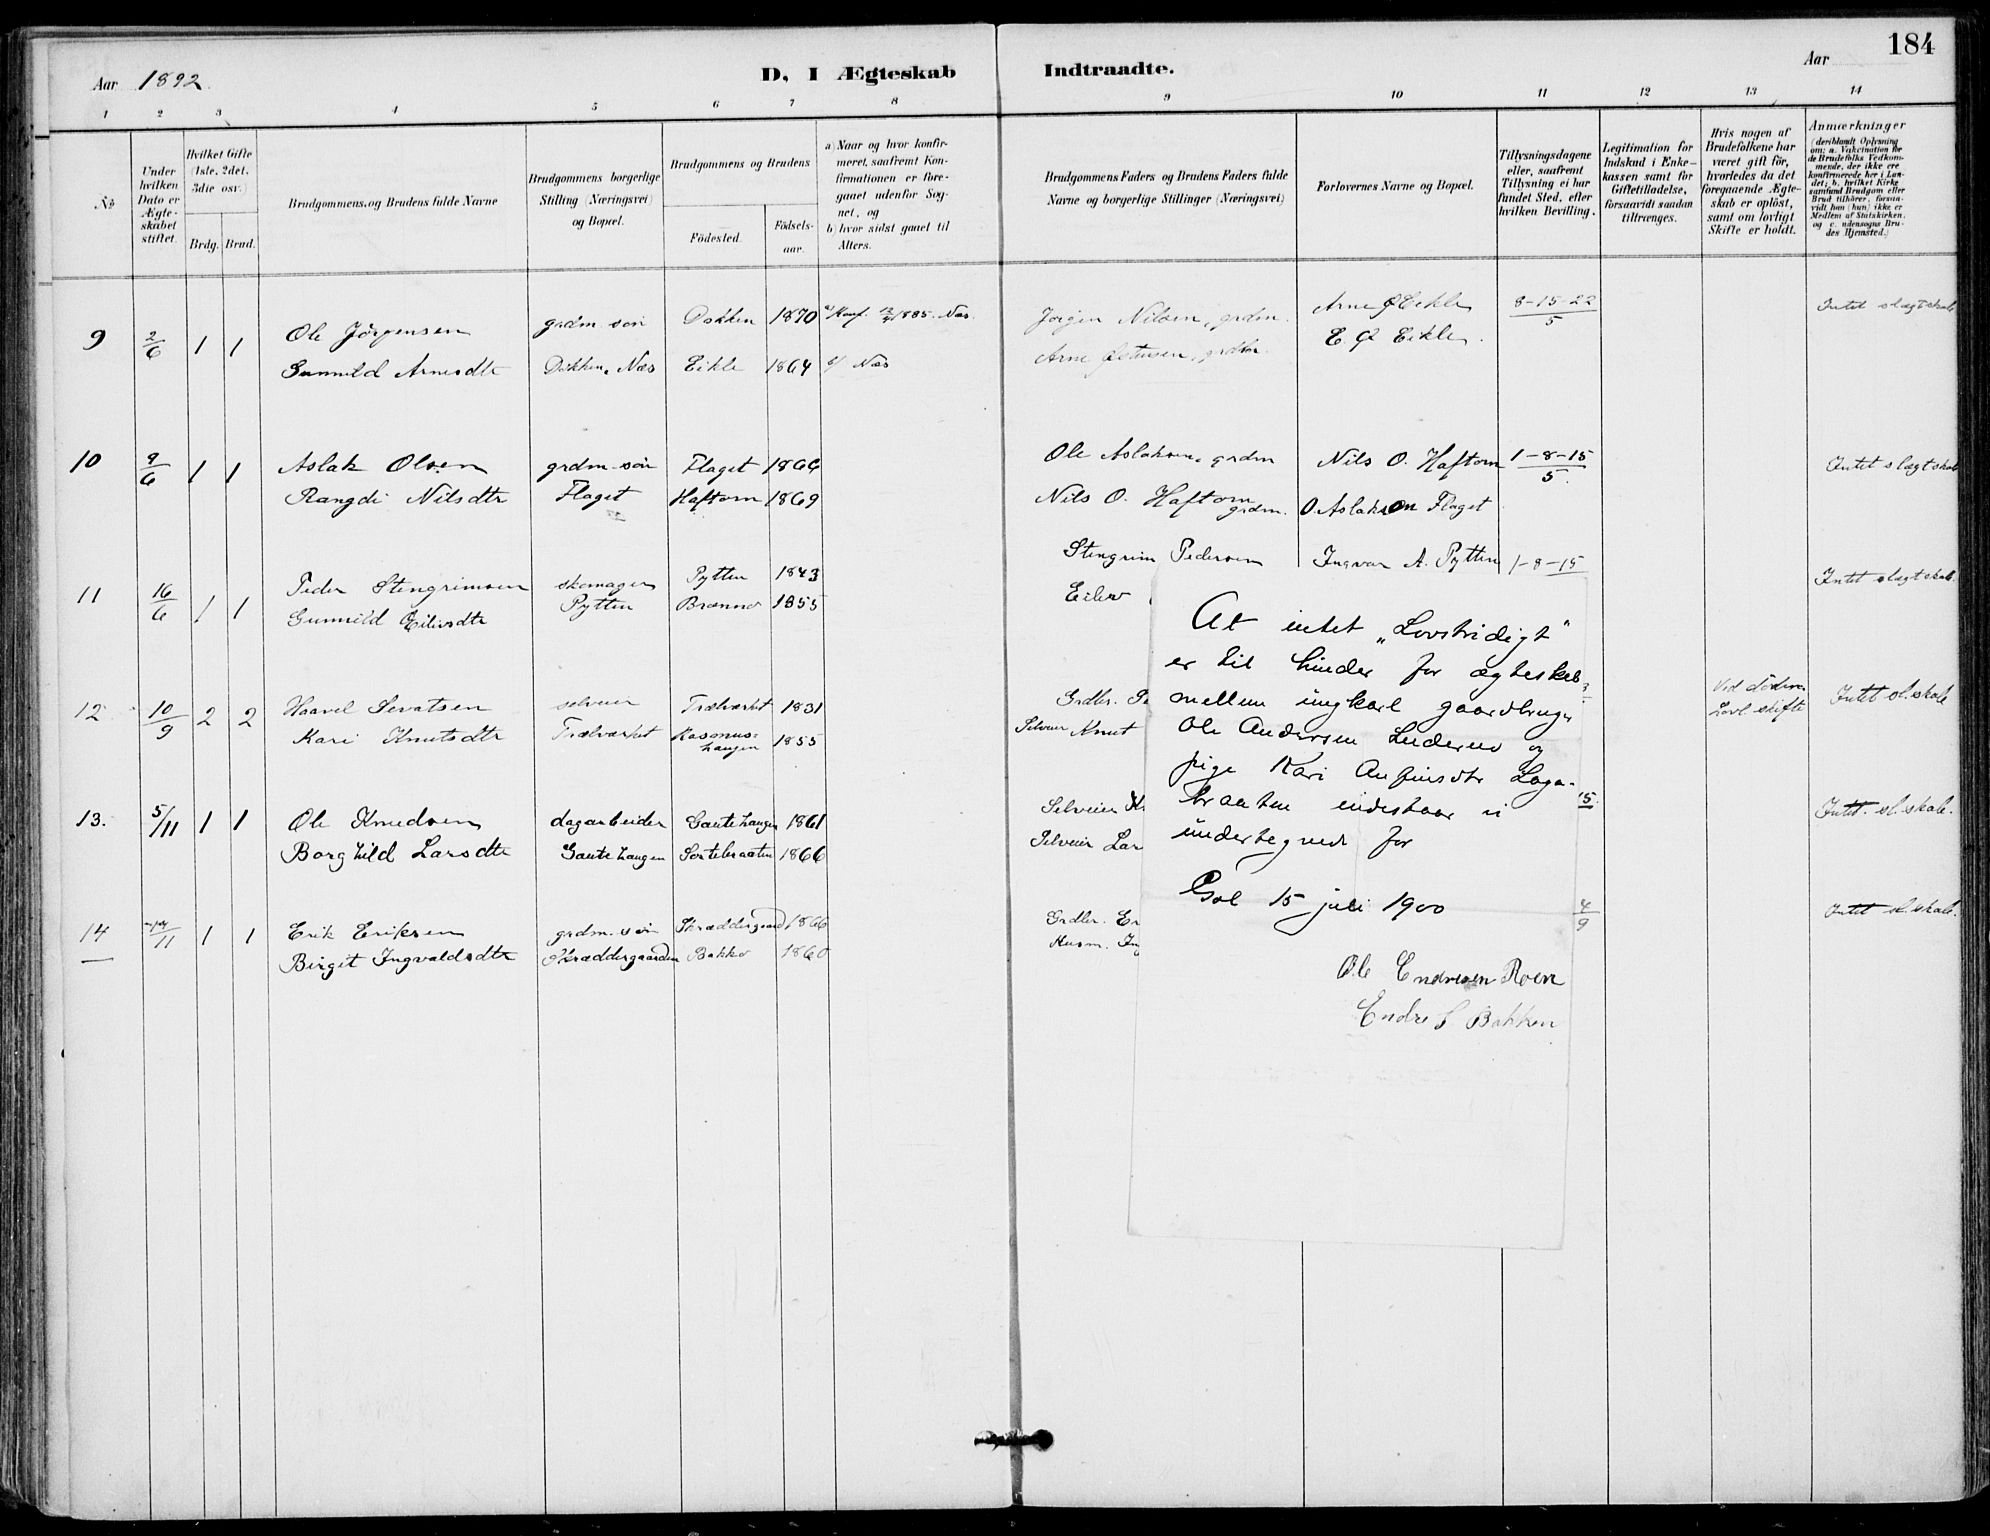 184
Aar 1892.
D, I Ægteskab Indtraadte.
Aar
1 2 3 4 5 6 7 8 9 10 11 12 13 14
№
Under hvilken Dato er Ægteskabet stiftet.
Hvilket Gifte (1ste, 2det, 3die osv.)
Brdg. Brud.
Brudgommens og Brudens fulde Navne
Brudgommens borgerlige Stilling (Næringsvei) og Bopæl.
Brudgommens og Brudens
Födested.
Födselsaar.
a) Naar og hvor konfirmeret, saafremt Konfirmationen er foregaaet udenfor Sognet, og
b) hvor sidst gaaet til Alters.
Brudgommens Faders og Brudens Faders fulde Navne og borgerlige Stillinger (Næringsvei)
Forlovernes Navne og Bopæl.
Tillysningsdagene eller, saafremt Tillysning ei har fundet Sted, efter hvilken Bevilling.
Legitimation for Indskud i Enkekassen samt for Giftetilladelse, forsaavidt saadan tiltrænges.
Hvis nogen af Brudefolkene har været gift för, hvorledes da det foregaaende Ægteskab er oplöst, samt om lovligt Skifte er holdt.
Anmærkninger (deriblandt Oplysning om: a. Vakcination for de Brudefolks Vedkommende, der ikke ere konfirmerede her i Landet; b. hvilket Kirkesamfund Brudgom eller Brud tilhörer, forsaavidt han (hun) ikke er Medlem af Statskirken, og c. udensogns Brudes Hjemsted.)
9 2/6 1 1 Ole Jörgensen grdm. sön Dokken 1870 a/ Konf. 1885. Næs. Jørgen Nilsen, grdm. Arne Ø Eikle 8-15-22/5 Intet slægtskab
Gunnild Arnesdtr Dokken, Næs Eikle 1864 b/ Næs Arne Østensen, grdbr. E. Ø Eikle.
10 9/6 1 1 Aslak Olsen grdm. sön Flaget 1866 Ole Aslaksen, grdm Nils O. Haftorn 1-8-15/5. Intet slægtskab
Rangdi Nilsdtr Flaget Haftorn 1869 Nils O. Haftorn grdm. O. Aslaksen Flaget
11 16/6 1 1 Peder Stengrimsen skomager Pytten 1843 Stengrim Pedersen Ingvar A. Pytten 1-8-15 Intet slægtskab.
Gunnild Eilivsdtr Pytten Brænno 1855 Eilev
12 10/9 2 2 Haavel Sevatsen selveier Trælværket 1831 Grdbr. Intet sl.skab
Kari Knutsdtr Trælværket Rasmushaugen 1855 Selveier Knut Ved döden. Lovl skifte
13. 5/11 1 1 Ole Knudsen dagarbeider Gautehaugen 1861 Selveier 15. Intet. sl.skab.
Borghild Larsdtr Gautehaugen Sortebraaten 1866 Selveier Lar
14 /11 1 1 Erik Eriksen grdm. sön Skræddergaard 1866 Grdbr. Er 4/9 Intet sl.skab.
Birgit Ingvaldsdtr Skræddergaarden Bakko 1860 Husm. Ing
At intet „Lovstridigt"
er til hinder for ægteskab
mellem ungkarl gaardbruger
Ole Andersen og
pige Kari Anfinsdtr Laga-
braaten indestaar vi
undertegnede for
Gol 15 juli 1900
Ole Endresen Roen
Endre S Bakken